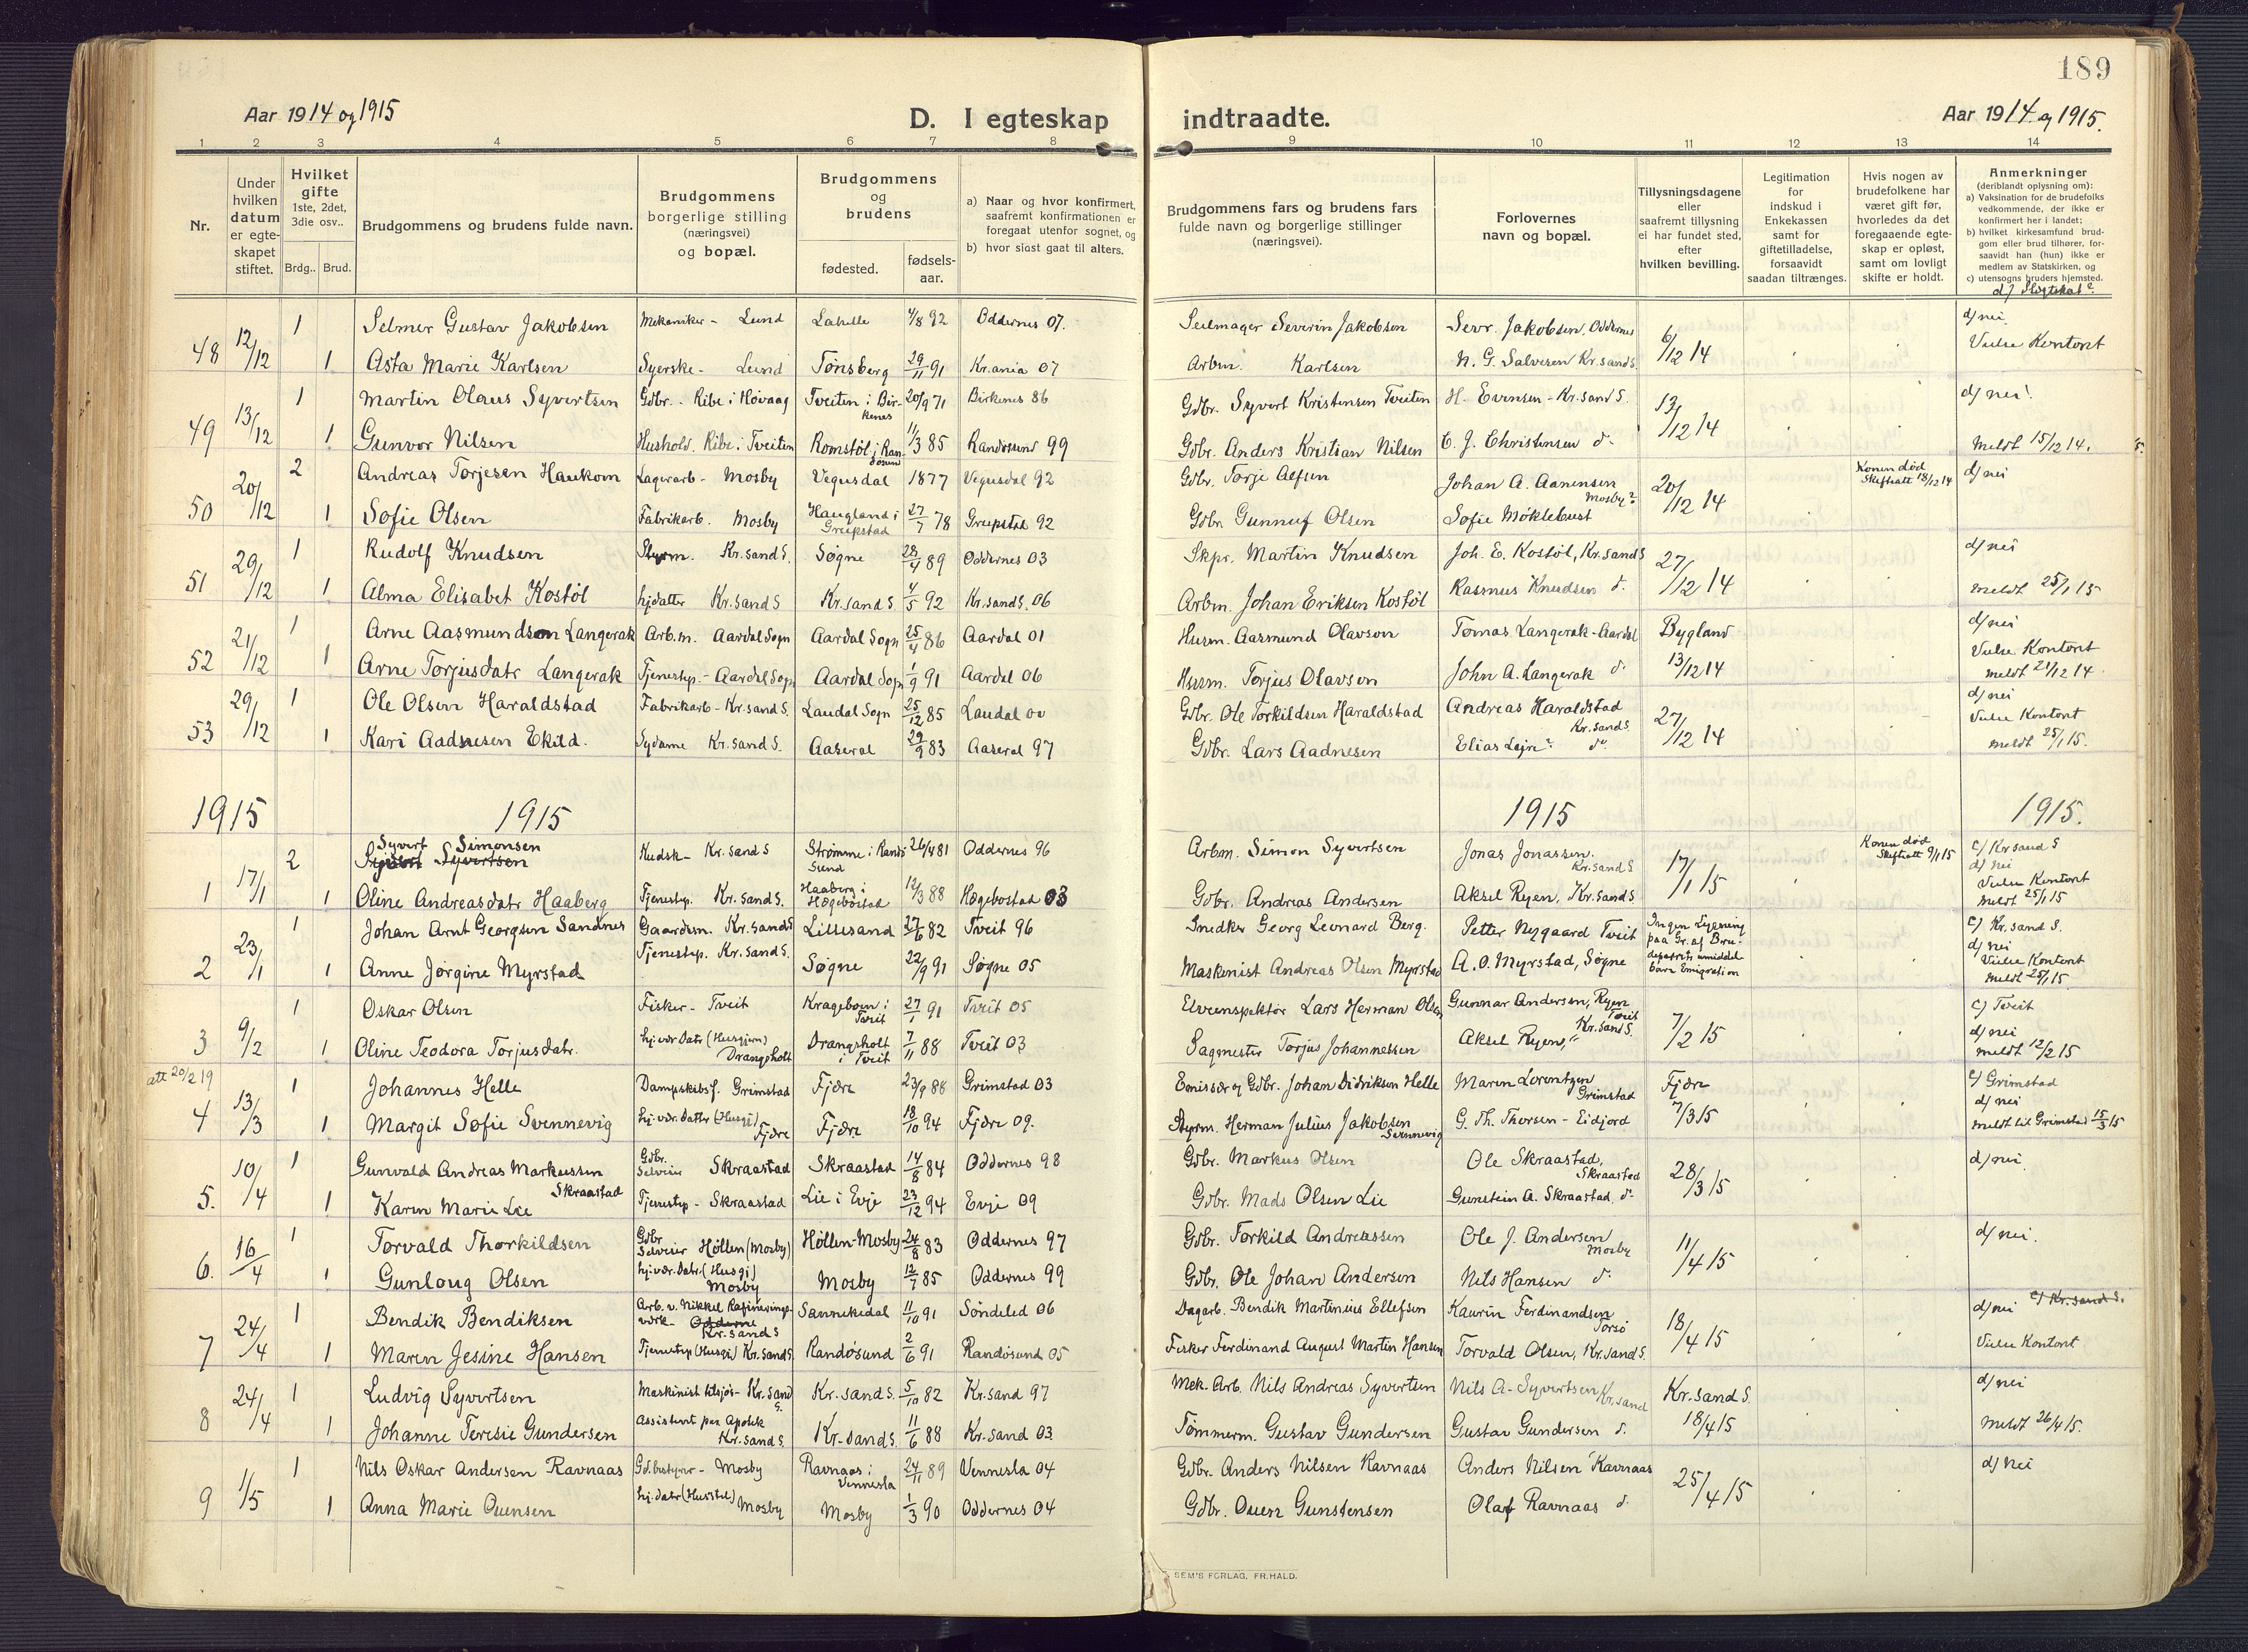 189
Aar 1914 og 1915
D. I egteskap indtraadte.
Aar 1914 og 1915.
1 2 3 4 5 6 7 8 9 10 11 12 13 14
Nr.
Under hvilken datum er egte-skapet stiftet.
Hvilket gifte 1ste, 2det, 3die osv..
Brdg.. Brud.
Brudgommens og brudens fulde navn.
Brudgommens borgerlige stilling (næringsvei) og bopæl.
Brudgommens og brudens
fødested. fødsels-aar.
a) Naar og hvor konfirmert, saafremt konfirmationen er foregaat utenfor sognet, og
b) hvor sidst gaat til alters.
Brudgommens fars og brudens fars fulde navn og borgerlige stillinger (næringsvei).
Forlovernes navn og bopæl.
Tillysningsdagene eller saafremt tillysning ei har fundet sted, efter hvilken bevilling.
Legitimation for indskud i Enkekassen samt for giftetilladelse, forsaavidt saadan tiltrænges.
Hvis nogen av brudefolkene har været gift før, hvorledes da det foregaaende egte-skap er opløst, samt om lovligt skifte er holdt.
Anmerkninger (deriblandt oplysning om):
a) Vaksination for de brudefolks vedkommende, der ikke er konfirmert her i landet;
b) hvilket kirkesamfund brud-gom eller brud tilhører, for-saavidt han (hun) ikke er medlem av Statskirken, og
c) utensogns bruders hjemsted.
d) Slegtskab?
48 12/12 1 Selmer Gustav Jakobsen Mekaniker - Lund 4/8 92 Oddernes 07. Seilmager Severin Jakobsen Sevr. Jakobsen, Oddernes 6/12 14 d/ nei
1 Asta Marie Karlsen Syerske - Lund Tønsberg 29/11 91 Kr.ania 07 Arbm. Karlsen N. G. Salvesen Kr.sand S. Vielse Kontort
49 13/12 1 Martin Olaus Syvertsen Gdbr. - Ribe i Høvaag Tveiten i Bir-kenes 20/9 71 Birkenes 86 Gdbr. Syvert Kristensen Tveiten H. Evensen - Kr.sand S. 13/12 14 d/ nei
1 Gunvor Nilsen Hushold. Ribe i Tveiten Romstøl i Ran-døsund 11/3 85 Randøsund 99 Gdbr. Anders Kristian Nilsen C. J. Christensen do Meldt 15/12 14.
50 20/12 2 Andreas Torjesen Haukom Lagerarb - Mosby Vegusdal 1877 Vegusdal 92 Gdbr. Torje Alfsen Johan A. Aanensen Mosby 20/12 14 Konen død Skifteatt 18/12 14 d/ nei
1 Sofie Olsen Fabrikarb. Mosby Haugland i Greipstad 27/7 78 Greipstad 92 Gdbr Gunnuf Olsen Sofie Møklebust
51 29/12 1 Rudolf Knudsen Styrm. Kr.sand S. Søgne 28/4 89 Oddernes 03 Skpr. Martin Knudsen Joh. E. Kostøl, Kr.sand S 27/12 14 d/ nei
1 Alma Elisabet Kostøl hj.datter Kr.sand S Kr.sand S. 4/5 92 Kr.sand S. 06 Arbm. Johan Eriksen Kostøl Rasmus Knudsen do meldt 25/1 15
52 21/12 1 Arne Aasmundson Langerak Arb.m. Aardal Sogn Aardal Sogn 25/4 86 Aardal 01 Husm. Aasmund Olavson Tomas Langerak - Aardal Bygland d/ nei
1 Arne Torjusdatr Langerak Tjenestep. - Aardal Sogn Aardal Sogn 1/9 91 Aardal 06 Husm. Torjus Olavson John A. Langerak do 13/12 14 Vielse Kontort meldt 21/12 14.
53 29/12 1 Ole Olsen Haraldstad Fabrikarb - Kr.sand S. Laudal Sogn 25/12 85 Laudal 00 Gdbr. Ole Torkildsen Haraldstad Andreas Haraldstad Kr.sand S 27/12 14 d/ nei Vielse Kontort
1 Kari Aadnesen Ekild. Sydame Kr.sand S. Aaseral 29/9 83 Aaseral 97 Gdbr. Lars Aadnesen Elias do meldt 25/1 15.
1915 1915 1915 1915.
1 17/1 2 Syvert Simonsen Syvert Syvertsen Kudsk - Kr.sand S Strømme i Randøsund 26/4 81 Oddernes 96 Arbm. Simon Syvertsen Jonas Jonassen. Kr.sand S 17/1 15 Konen død Skifteatt 9/1 15 c/ Kr.sand S d/ nei
1 Oline Andreasdatr Haaberg Tjenestep. Kr.sand S. Haaberg i Hægebostad 12/3 88 Hægebostad 03 Gdbr. Andreas Andersen Aksel Ryen, Kr.sand S. Vielse Kontort meldt 25/1 15
2 23/1 1 Johan Arnt Georgsen Sandnes Gaardsm. Kr.sand S Lillesand 27/6 82 Tveit 96 Snedker Georg Leonard Berg. Petter Nygaard Tveit Ingen Lysning paa Gr. af Bru-deparrets umiddel-bare Emigration c/ Kr.sand S. d/ nei
1 Anne Jørgine Myrstad Tjenestep. Kr.sand S. Søgne 22/9 91 Søgne 05 Maskinist Andreas Olsen Myrstad A. O. Myrstad, Søgne Vielse Kontort meldt 25/1 15
3 9/2 1 Oskar Olsen Fisker - Tveit Krageboen i Tveit 27/1 91 Tveit 05 Elveinspektør Lars Herman Olsen Gunnar Andersen, Ryen Tveit 7/2 15 c/ Tveit
1 Oline Teodora Torjusdatr. hj.vær Datr (Husgjern) Drangsholt Drangsholt i Tveit 7/11 88 Tveit 03 Sagmester Torjus Johannessen Aksel Ryen, Kr.sand S. d/ nei meldt 12/2 15
att 20/2 19
4 13/3 1 Johannes Helle Dampskibsf. Grimstad Fjære 23/9 88 Grimstad 03 Emissær og Gdbr. Johan Didriksen Helle Maren Lorentzen Grimstad Fjære c/ Grimstad d/ nei
1 Margit Sofie Svennevig hj.vær. datter (Husgj) Fjære Fjære 18/10 94 Fjære 09. Styrm. Herman Julius Jakobsen Svennevig G. Th. Thorsen - Eidjord 7/3 15 meldt til Grimstad 15/3 15
5. 10/4 1 Gunvald Andreas Markussen Skraastad Gdbr. Selveier Skraastad Skraastad 14/8 84 Oddernes 98 Gdbr. Markus Olsen Ole Skraastad, Skraastad 28/3 15 d/ nei
1 Karen Marie Lie Tjenestep - Skraastad Lie i Evje 23/12 94 Evje 09 Gdbr. Mads Olsen Lie Gunstein A. Skraastad, do
6. 16/4 1 Torvald Thorkildsen Gdbr Selveier Höllen (Mosby) Höllen-Mosby 24/8 83 Oddernes 97 Gdbr. Torkild Andreassen Ole J. Andersen Mosby 11/4 15 d/ nei.
1 Gunloug Olsen hj.vær.datr. (Husgj) Mosby Mosby 12/7 85 Oddernes 99 Gdbr. Ole Johan Andersen Nils Hansen do
7 24/4 1 Bendik Bendiksen Arb. v. Nikkel Rafinerings-verk - Odderne Kr.sand S Sannekedal 11/10 91 Søndeled 06 Dagarb. Bendik Martinius Ellefsen Kaurin Ferdinandsen Torsø 18/4 15 d/ nei c/ Kr.sand S.
1 Maren Jesine Hansen Tjenestep (Husgj) Kr.sand S. Randøsund 2/6 91 Randøsund 05 Fisker Ferdinand August Martin Hansen Torvald Olsen, Kr.sand S. Vielse Kontort
8 24/4 1 Ludvig Syvertsen Maskinist tilsjøs - Kr.sand S. Kr.sand S. 5/10 82 Kr.sand 97 Mek. Arb. Nils Andreas Syvertsen Nils A. Syvertsen Kr.sand Kr.sand S. d/ nei
1 Johanne Teresie Gundersen Assistent paa Apotek Kr.sand S. Kr.sand S. 11/6 88 Kr.sand 03. Tømmerm. Gustav Gundersen Gustav Gundersen do 18/4 15 meldt 26/4 15.
9 1/5 1 Nils Oskar Andersen Ravnaas Gdbestyrer - Mosby Ravnaas i Vennesla 24/1 89 Vennesla 04 Gdbr. Anders Nilsen Ravnaas Anders Nilsen Ravnaas 25/4 15 d/ nei
1 Anna Marie Ouensen hj.datr (Husstel) Mosby Mosby 1/3 90 Oddernes 04 Gdbr. Ouen Gunstensen Olaf Ravnaas do
SEM'S FORLAG, FR. HALD.